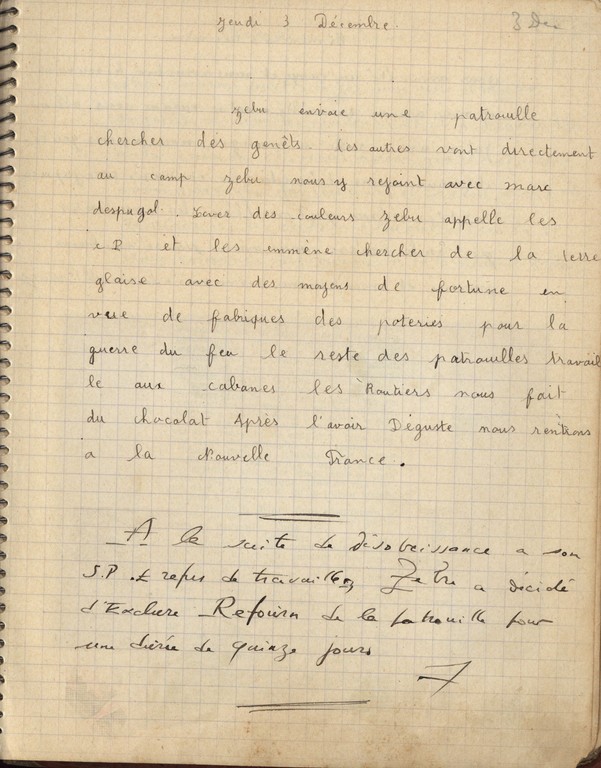 Jeudi 3 Décembre.
3 Dec
Zebu envoie une patrouille
chercher des genêts. les autres vont directement
au camp Zebu nous y rejoint avec marc
despugol. Lever des couleurs Zebu appelle les
C.P. et les emmène chercher de la terre
glaise avec des moyens de fortune en
vue de fabriques des poteries pour la
guerre du feu le reste des patrouilles travail
le aux cabanes les Routiers nous fait
du chocolat Après l'avoir Déguste nous rentrons
a la Nouvelle France.
A la suite de désobeissance a son
S.P. et refus de travailler, Zebu a décidé
d'Exclure de la patrouille pour
une durée de quinze jours